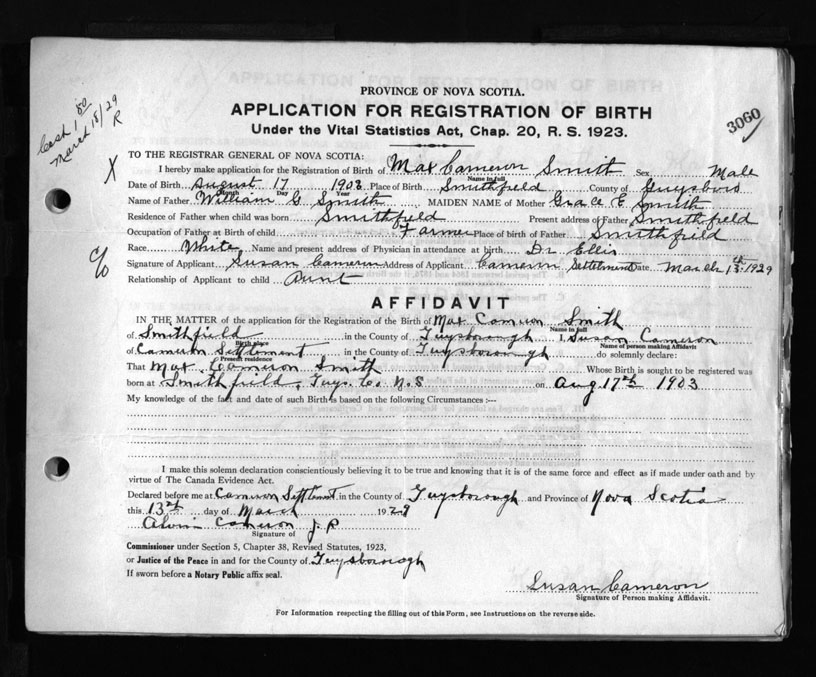 PROVINCE OF NOVA SCOTIA.
APPLICATION FOR REGISTRATION OF BIRTH
Under the Vital Statistics Act, Chap. 20, R. S. 1923.
3060
Cash 1.50
March 18/29
R
X
TO THE REGISTRAR GENERAL OF NOVA SCOTIA:
I hereby make application for the Registration of Birth of Max Cameron Smith Sex Male
Name in full
Date of Birth August 17 1903 Place of Birth Smithfield County of Guysboro
Month Day Year
Name of Father William G Smith MAIDEN NAME of Mother Grace E Smith
Residence of Father when child was born Smithfield Present address of Father Smithfield
Occupation of Father at Birth of child Farmer Place of birth of Father Smithfield
Race White Name and present address of Physician in attendance at birth Dr Ellis
c/o
Signature of Applicant Susan Cameron Address of Applicant Cameron Settlement Date March 13th 1929
Relationship of Applicant to child Aunt
AFFIDAVIT
IN THE MATTER of the application for the Registration of the Birth of Max Cameron Smith
Name in full
of Smithfield in the County of Guysborough I, Susan Cameron
Birth place Name of person making Affidavit
of Cameron Settlement in the County of Guysborough do solemnly declare:
Present residence
That Max Cameron Smith Whose Birth is sought to be registered was
born at Smithfield, Guys. Co. N.S on Aug. 17th 1903
My knowledge of the fact and date of such Birth is based on the following Circumstances :—
I make this solemn declaration conscientiously believing it to be true and knowing that it is of the same force and effect as if made under oath and by
virtue of The Canada Evidence Act.
Declared before me at Cameron Settlement in the County of Guysborough and Province of Nova Scotia
this 13th day of March 192
Alvin Cameron J. P
Signature of
Commissioner under Section 5, Chapter 38, Revised Statutes, 1923,
or Justice of the Peace in and for the County of Guysborough
If sworn before a Notary Public affix seal.
Susan Cameron
Signature of Person making Affidavit.
For Information respecting the filling out of this Form, see Instructions on the reverse side.